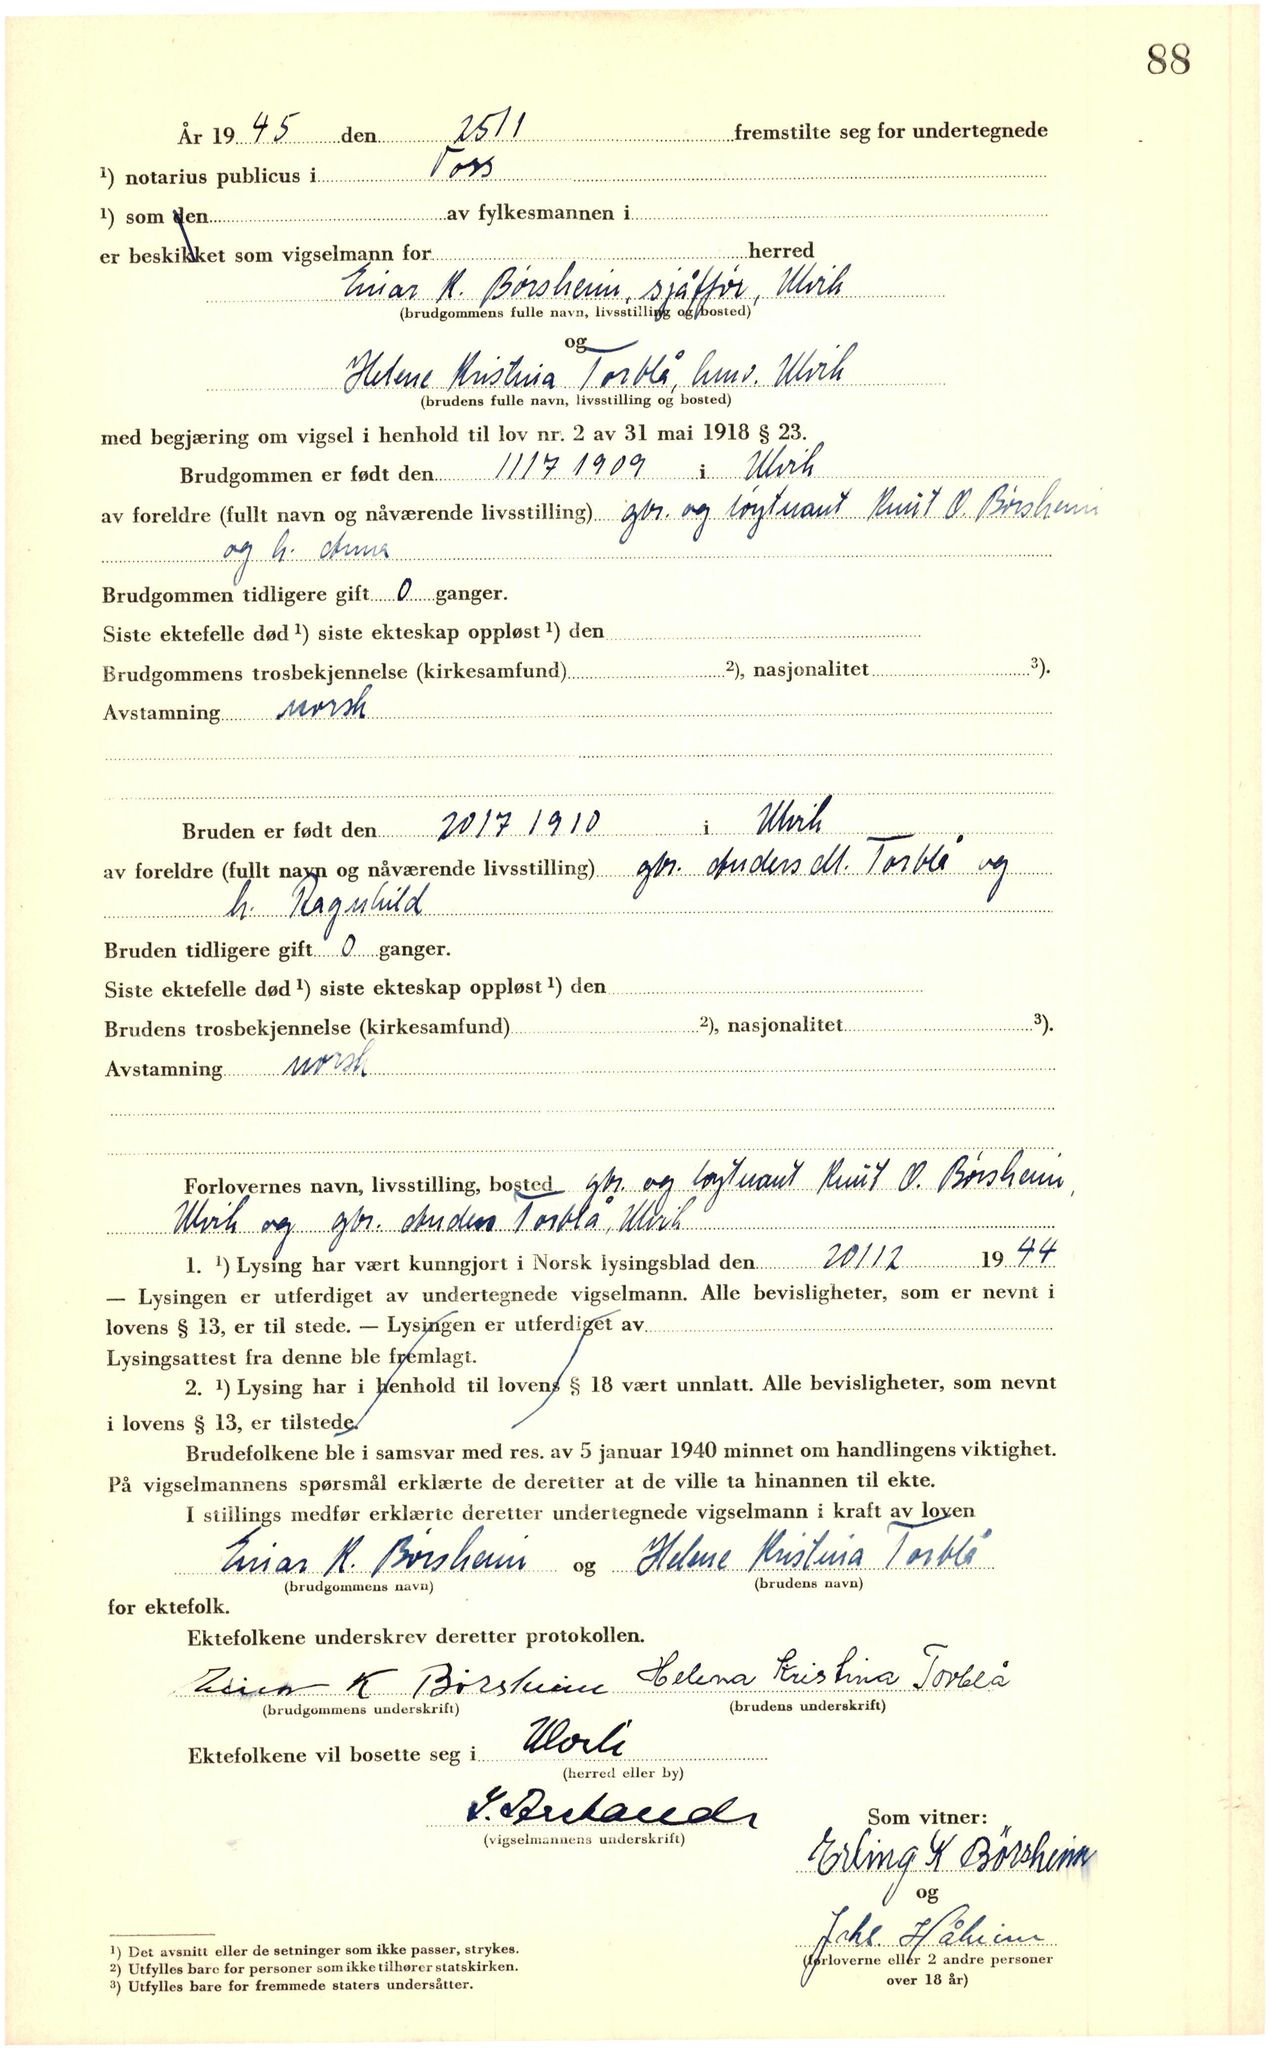 88
År 1945 den 25/1 fremstilte seg for undertegnede
¹) notarius publicus i Voss
¹) som den av fylkesmannen i
er beskikket som vigselmann for herred
Einar K. Børsheim, sjåffør, Ulvik
(brudgommens fulle navn, livsstilling og bosted)
og
Helene Kristina Torblå, hmv. Ulvik
(brudens fulle navn, livsstilling og bosted)
med begjæring om vigsel i henhold til lov nr. 2 av 31 mai 1918 § 23.
Brudgommen er født den 11/7 1909 i Ulvik
av foreldre (fullt navn og nåværende livsstilling) gbr. og løytnant Knut O. Børsheim
og h. Anna
Brudgommen tidligere gift 0 ganger.
Siste ektefelle død ¹) siste ekteskap oppløst ¹) den
Brudgommens trosbekjennelse (kirkesamfund) ²), nasjonalitet ³).
Avstamning norsk
Bruden er født den 20/7 1910 i Ulvik
av foreldre (fullt navn og nåværende livsstilling) gbr. Anders M. Torblå og
h. Ragnhild
Bruden tidligere gift 0 ganger.
Siste ektefelle død ¹) siste ekteskap oppløst ¹) den
Brudens trosbekjennelse (kirkesamfund) ²), nasjonalitet ³).
Avstamning norsk
Forlovernes navn, livsstilling, bosted gbr. og løytnant Knut O. Børsheim,
Ulvik og gbr. Anders Torblå, Ulvik
1. ¹) Lysing har vært kunngjort i Norsk lysingsblad den 20/12 1944
— Lysingen er utferdiget av undertegnede vigselmann. Alle bevisligheter, som er nevnt i
lovens § 13, er til stede. — Lysingen er utferdiget av
Lysingsattest fra denne ble fremlagt.
2. ¹) Lysing har i henhold til lovens § 18 vært unnlatt. Alle bevisligheter, som nevnt
i lovens § 13, er tilstede.
Brudefolkene ble i samsvar med res. av 5 januar 1940 minnet om handlingens viktighet.
På vigselmannens spørsmål erklærte de deretter at de ville ta hinannen til ekte.
I stillings medfør erklærte deretter undertegnede vigselmann i kraft av loven
Einar K. Børsheim og Helene Kristina Torblå
(brudgommens navn) (brudens navn)
for ektefolk.
Ektefolkene underskrev deretter protokollen.
Einar K Børsheim Helena Kristina Torblå
(brudgommens underskrift) (brudens underskrift)
Ektefolkene vil bosette seg i Ulvik
(herred eller by)
(vigselmannens underskrift)
Som vitner:
Erling K Börsheim
og
Johs Håheim
(forloverne eller 2 andre personer
over 18 år)
¹) Det avsnitt eller de setninger som ikke passer, strykes.
²) Utfylles bare for personer som ikke tilhører statskirken.
³) Utfylles bare for fremmede staters undersåtter.